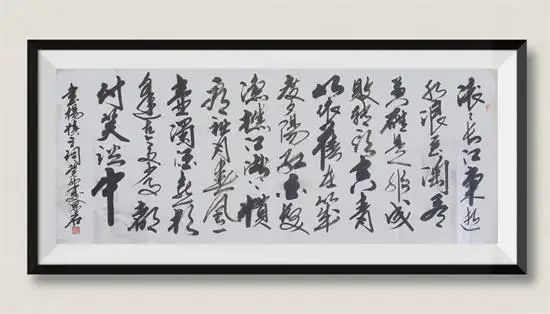 滚々长江东逝
水浪花淘尽
英雄是非成
败转头空青
山依旧在几
度夕阳红白发
渔樵江渚上惯
看秋月春风一
壶浊酒喜相
逢古今多少事都
付笑谈中
书杨慎之词